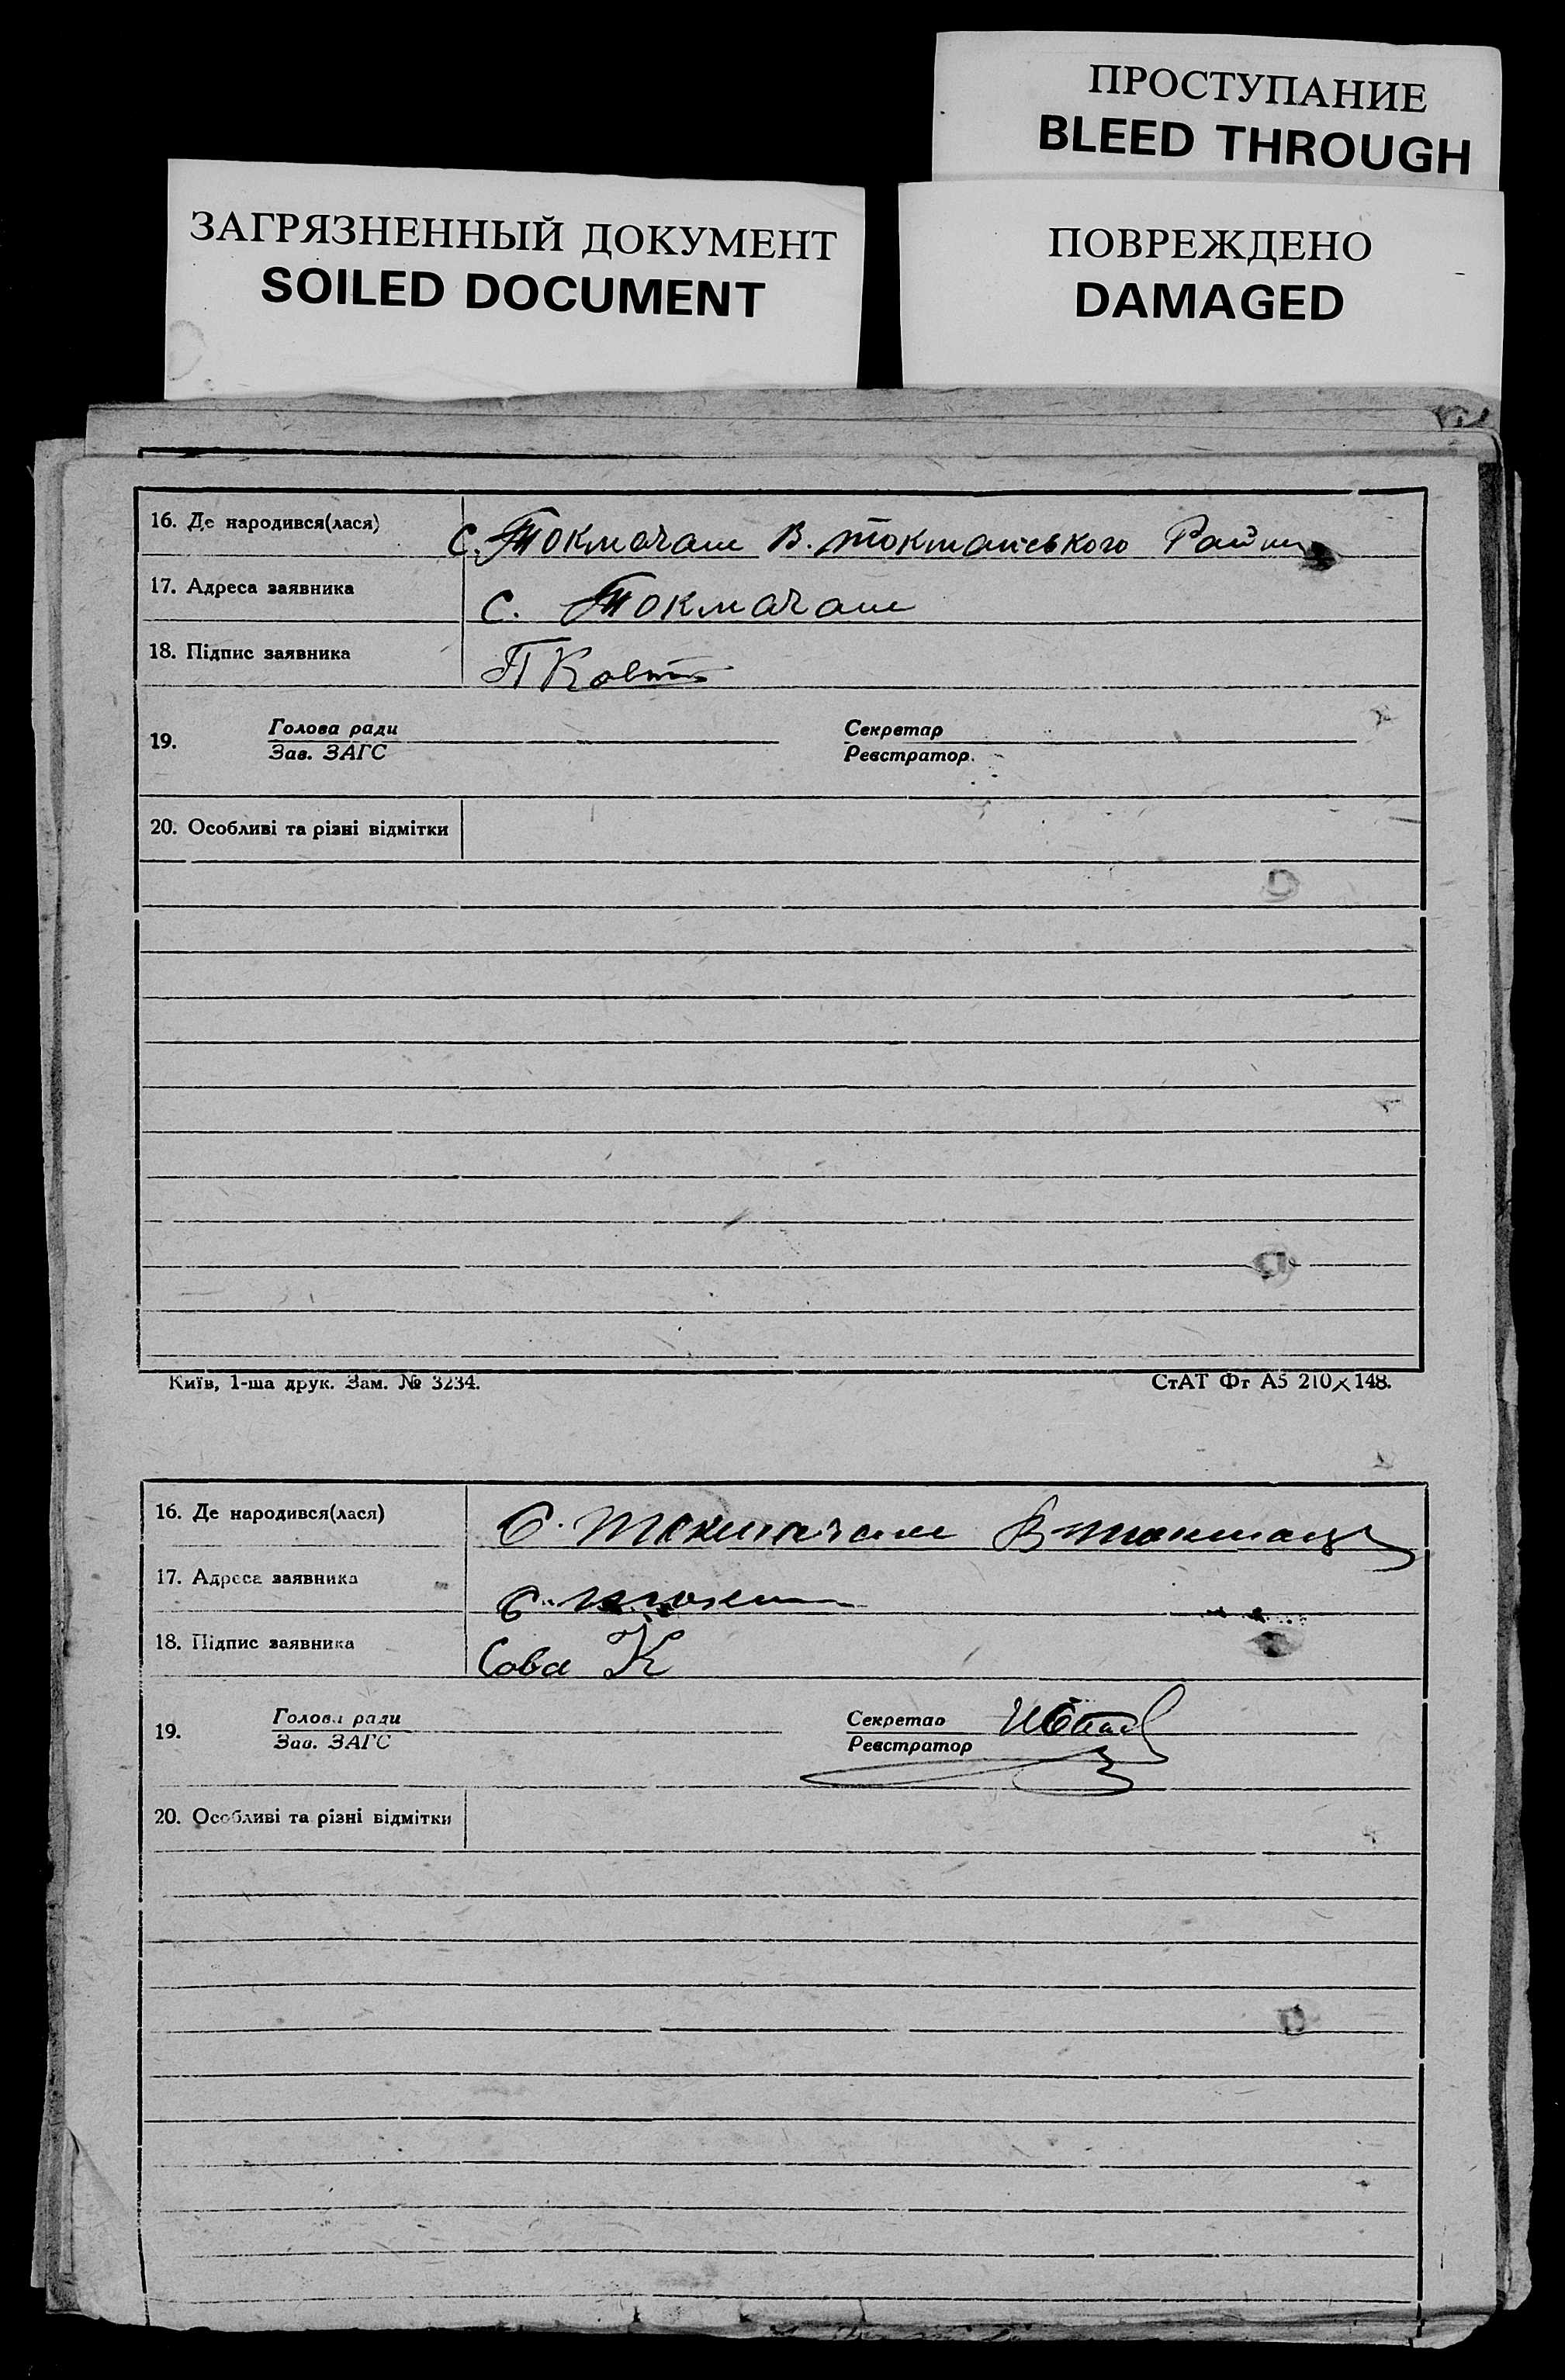 ПРОСТУПАНИЕ
BLEED THROUGH
ЗАГРЯЗНЕННЫЙ ДОКУМЕНТ
SOILED DOCUMENT
ПОВРЕЖДЕНО
DAMAGED
16. Де народився(лася) С. Токмачаш В. токмацького
17. Адреса заявника с. Токмачаш
18. Підпис заявника П
19. Голова ради Секретар
Зав. ЗАГС Реєстратор.
20. Особливі та різні відмітки
Київ, 1-ша друк. Зам. № 3234. СтАТ Фт А5 210×148.
16. Де народився(лася) С. Токмачаш
17. Адреса заявника С.
18. Підпис заявника Сова К
19. Голова ради Секретар
Зав. ЗАГС Реєстратор
20. Особливі та різні відмітки